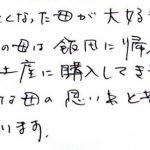 くなった母が大好き
の母は飯田に帰
土産に購入してき
な母の思い出と
います。